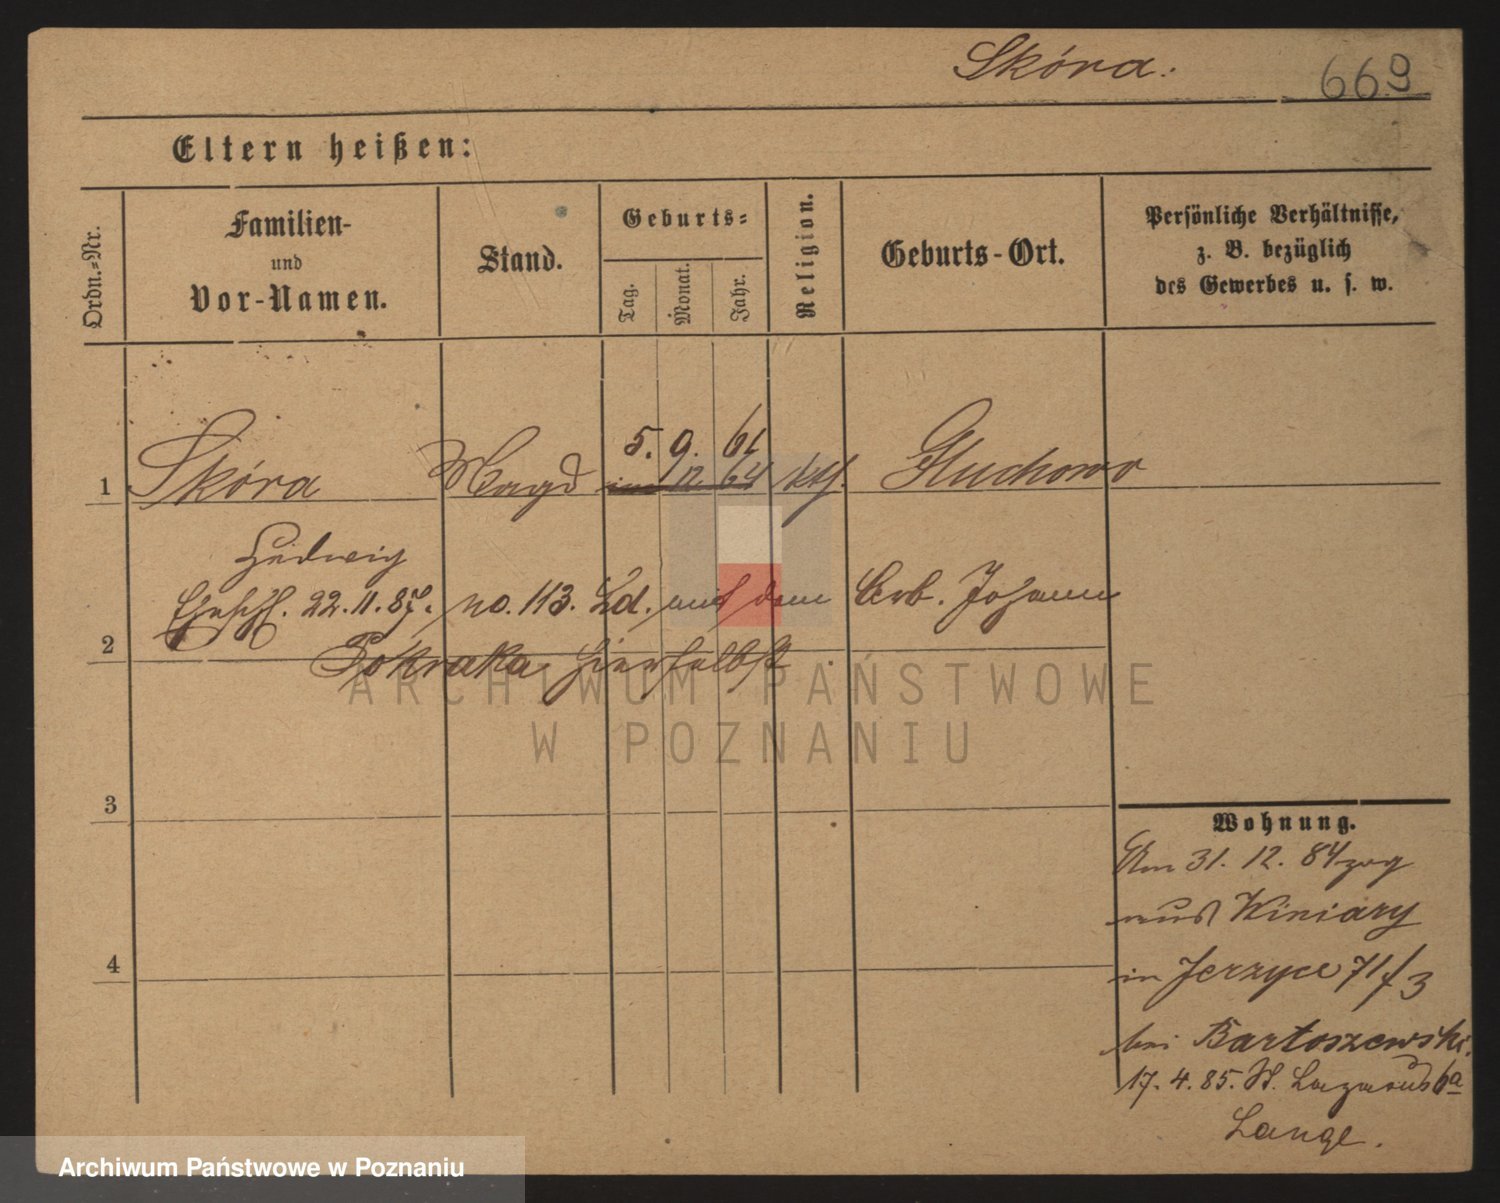 Skóra.
669
Eltern heißen:
Ordn.=Nr.
Familien-
und
Vor-Namen.
Stand.
Geburts=
Tag.
Monat.
Jahr.
Religion.
Geburts-Ort.
Persönliche Verhältnisse,
z. B. bezüglich
des Gewerbes u. s. w.
5. 9. 61
1 Skóra Magd 12 64 kth. Gluchowo
Hedwig
Ehesch. 22.11.87. no. 113. Ld. mit dem Arb. Johann
2 Pokraka hierselbst
3
4
Wohnung.
Am 31. 12. 84 zog
aus Winiary
in Jerzyce 71/3
bei Bartoszewski.
17. 4. 85. St. Lazarus 6a
Lange.
ARCHIWUM PAŃSTWOWE
W POZNANIU
Archiwum Państwowe w Poznaniu